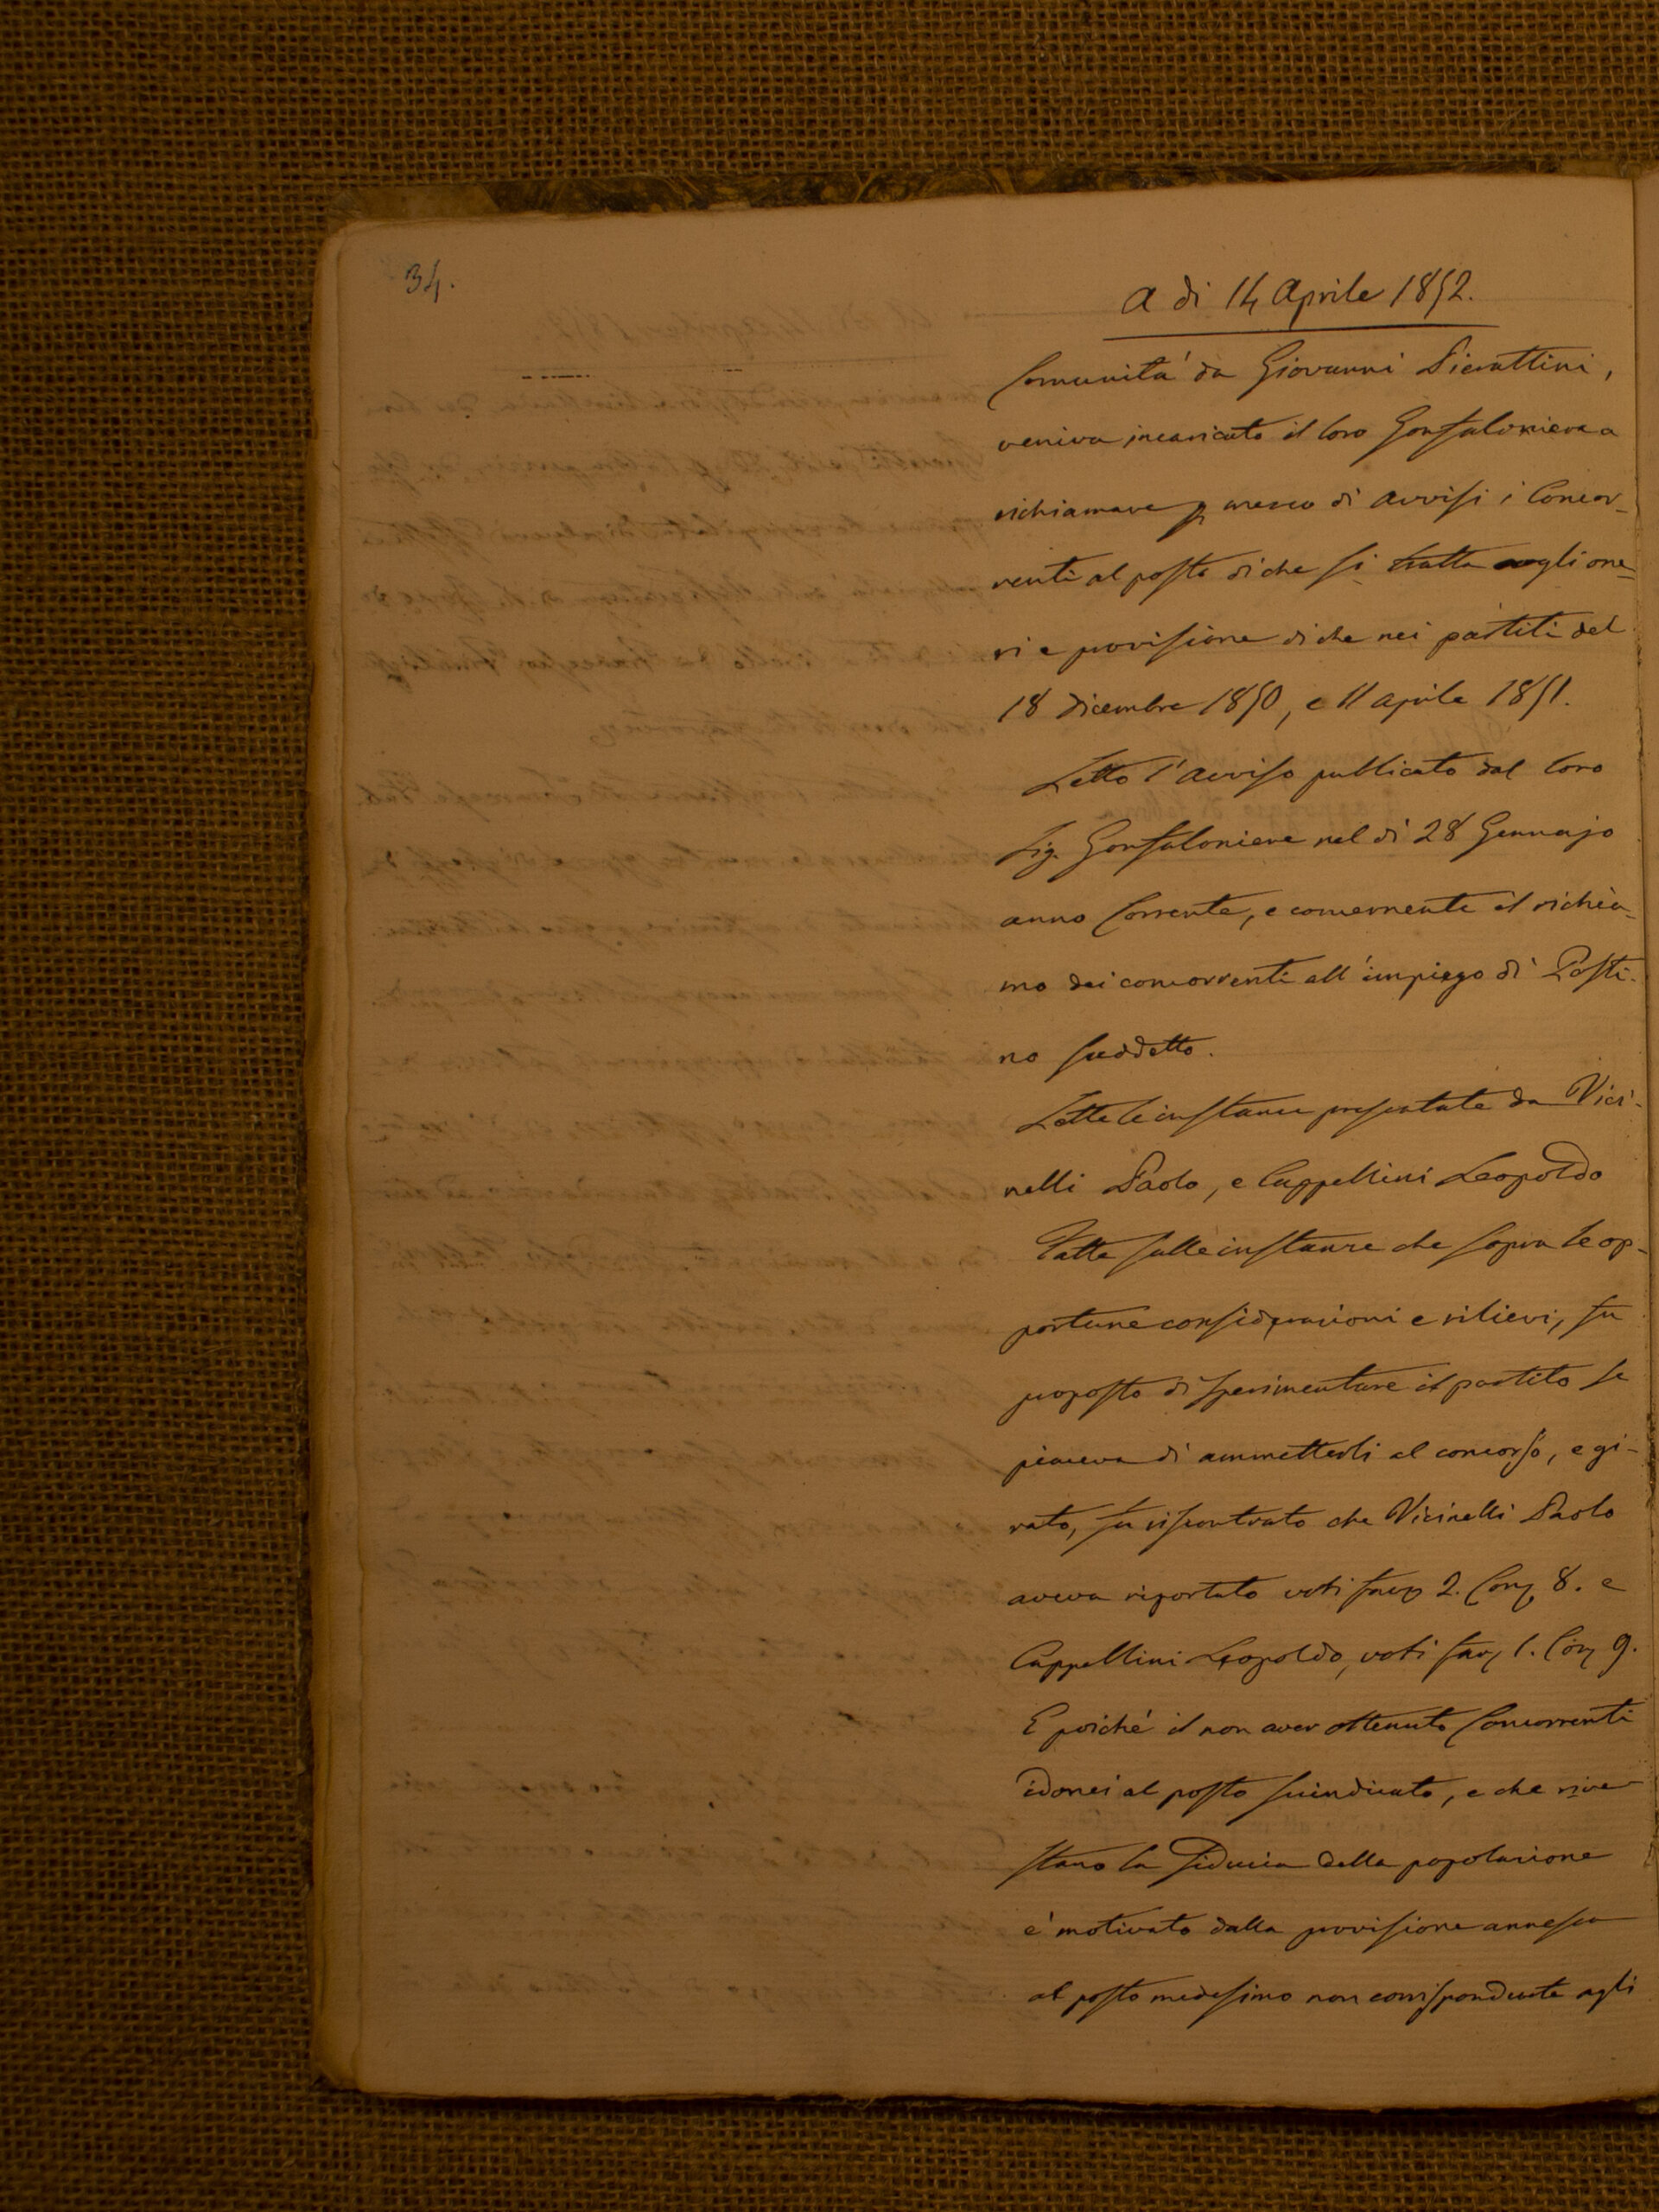 34.
A di 14 Aprile 1852.
Comunita' da Giovanni Pierattini,
veniva incaricato il loro Gonfaloniere a
richiamare p mezzo di avvisi i Concor-
renti al posto di che si tratta cogli one-
ri e provisione di che nei partiti del
18 Dicembre 1850, e 11 Aprile 1851.
Letto l'avviso publicato dal loro
Sig. Gonfaloniere nel di 28 Gennajo
anno Corrente, e concernente il richia-
mo dei concorrenti all'impiego di Posti-
no suddetto.
Lette le instanze presentate da Vici-
nelli Paolo, e Cappellini Leopoldo
Fatte sulle instanze che sopra le op-
portune considerazioni e rilievi, fu
proposto di sperimentare il partito se
piaceva di ammetterli al concorso, e gi-
rato, fu riscontrato che Vicinelli Paolo
aveva riportato voti fav 2. Con 8. e
Cappellini Leopoldo, voti fav 1. Con 9.
E poiché il non aver ottenuto Concorrenti
idonei al posto suindicato, e che rive-
stano la fiducia della popolazione
e' motivato dalla provisione annessa
al posto medesimo non corrispondente agli